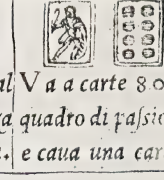 al V a a carte 80
za quadro di paſsio
. e caua una car